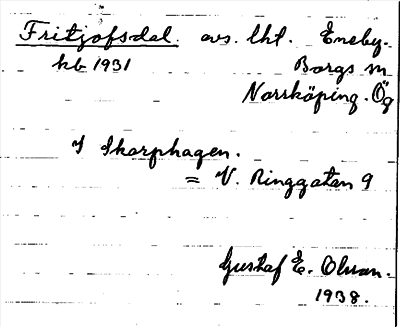 Fritjofsdal. avs. lht. Eneby.
kb 1931 Borgs sn
Norrköping. Ög
I Skarphagen.
= V. Ringgatan 9
Gustaf E. Olsson.
1938.